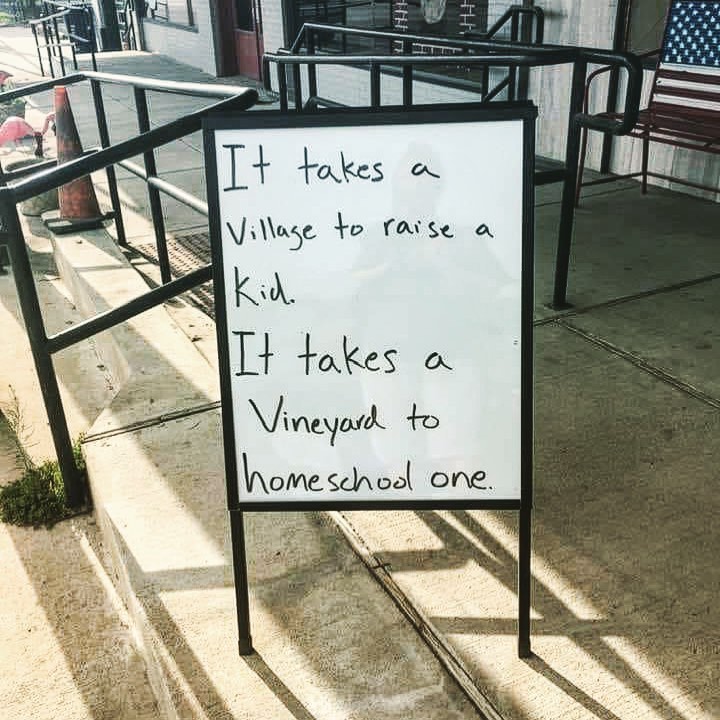 It takes a
Village to raise a
kid.
It takes a
Vineyard to
homeschool one.